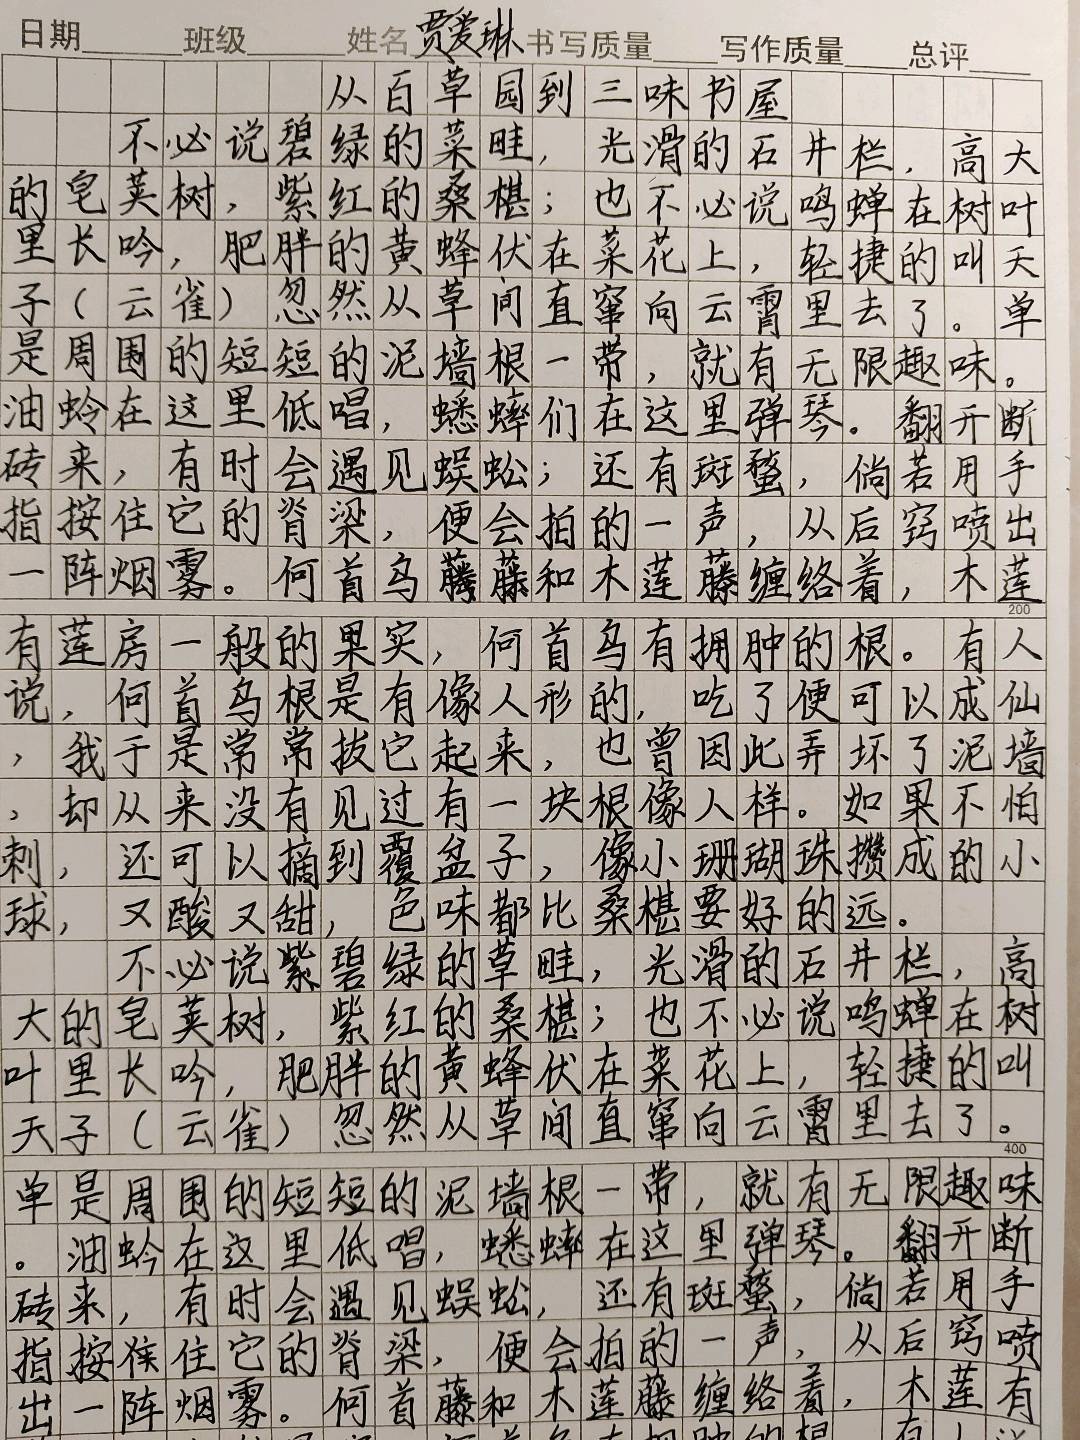 日期____班级____姓名贾爱琳书写质量____写作质量____总评____
从百草园到三味书屋
不必说碧绿的菜畦，光滑的石井栏，高大
的皂荚树，紫红的桑椹；也不必说鸣蝉在树叶
里长吟，肥胖的黄蜂伏在菜花上，轻捷的叫天
子（云雀）忽然从草间直窜向云霄里去了。单
是周围的短短的泥墙根一带，就有无限趣味。
油蛉在这里低唱，蟋蟀们在这里弹琴。翻开断
砖来，有时会遇见蜈蚣；还有斑蝥，倘若用手
指按住它的脊梁，便会拍的一声，从后窍喷出
一阵烟雾。何首乌藤藤和木莲藤缠络着，木莲
200
有莲房一般的果实，何首乌有拥肿的根。有人
说，何首乌根是有像人形的，吃了便可以成仙
，我于是常常拔它起来，也曾因此弄坏了泥墙
，却从来没有见过有一块根像人样。如果不怕
刺，还可以摘到覆盆子，像小珊瑚珠攒成的小
球，又酸又甜，色味都比桑椹要好的远。
不必说紫碧绿的草畦，光滑的石井栏，高
大的皂荚树，紫红的桑椹；也不必说鸣蝉在树
叶里长吟，肥胖的黄蜂伏在菜花上，轻捷的叫
天子（云雀）忽然从草间直窜向云霄里去了。
400
单是周围的短短的泥墙根一带，就有无限趣味
。油蛉在这里低唱，蟋蟀在这里弹琴。翻开断
砖来，有时会遇见蜈蚣，还有斑蝥，倘若用手
指按住它的脊梁，便会拍的一声，从后窍喷
出一阵烟雾。何首藤和木莲藤缠络着，木莲有